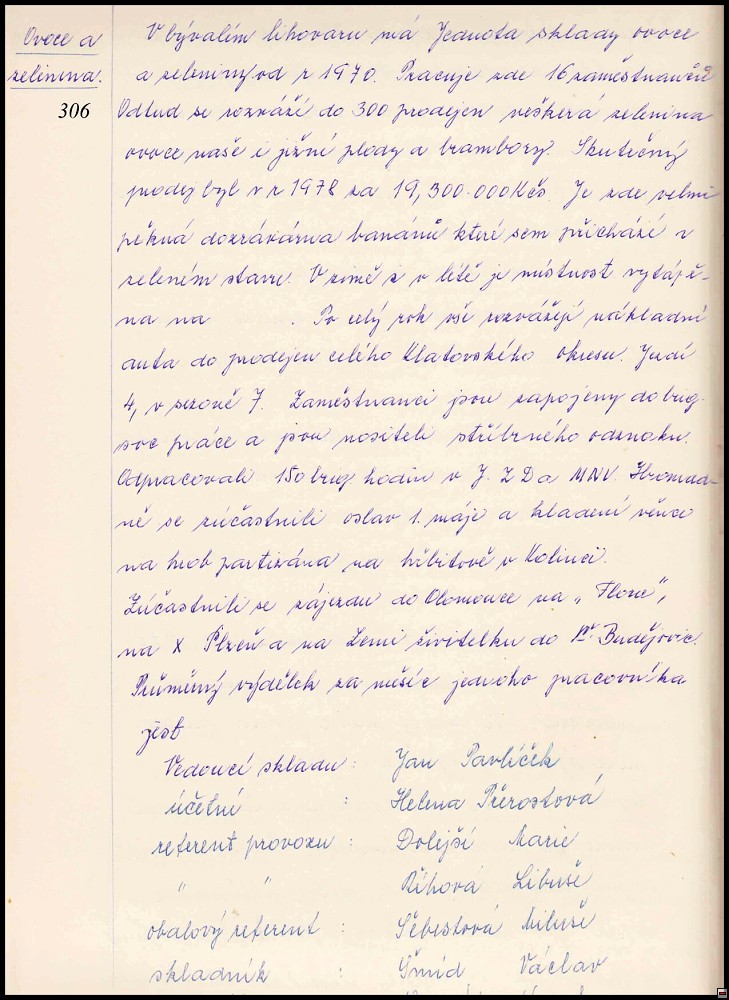 Ovoce a
zelenina.
306
V bývalém lihovaru má Jednota sklady ovoce
a zeleniny od r 1970. Pracuje zde 16 zaměstnanců
Odtud se rozváží do 300 prodejen veškerá zelenina
ovoce naše i jižní plody a brambory. Skutečný
prodej byl v r 1978 za 19,300.000 Kčs. Je zde velmi
pěkná dozrávárna banánů které sem přichází v
zeleném stavu. V zimě i v létě je místnost vytápě-
na na . Po celý rok vše rozvážejí nákladní
auta do prodejen celého Klatovského okresu. Jezdí
4, v sezoně 7. Zaměstnanci jsou zapojeny do brig.
soc práce a jsou nositeli stříbrného odznaku.
Odpracovali 150 brig. hodin v J.Z.D a MNV. Hromad-
ně se zúčastnili oslav 1. máje a kladení věnce
na hrob partizána na hřbitově v Kolinci.
Zúčastnili se zájezdu do Olomouce na „Flore",
na X Plzeň a na Zemi živitelku do Č. Budějovic.
Průměrný výdělek za měsíc jednoho pracovníka
jest
Vedoucí skladu : Jan Pavlíček
účetní : Helena Přerostová
referent provozu : Dolejší Marie
" " Říhová Libuše
obalový referent : Šebestová Miluše
skladník : Šmíd Václav